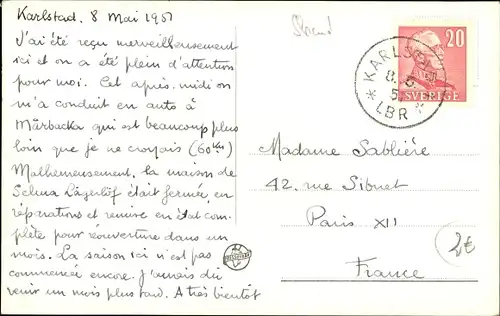 Karlstad, 8 Mai 1951
J'ai été reçu merveilleusement
ici et on a été plein d'attentions
pour moi. Cet après-midi on
m'a conduit en auto à
Mårbacka qui est beaucoup plus
loin que je ne croyais (60 Km)
Malheureusement, la maison de
Selma Lägerlöf était fermée, en
réparations et remise en état com-
plète pour réouverture dans un
mois. La saison ici n'est pas
commencée encore. J'aurais dû
venir un mois plus tard. A très bientôt
20
SVERIGE
KARLSTAD
8. 5.
LBR
Madame Sablière
42. rue Sibuet
Paris XII
France
2€